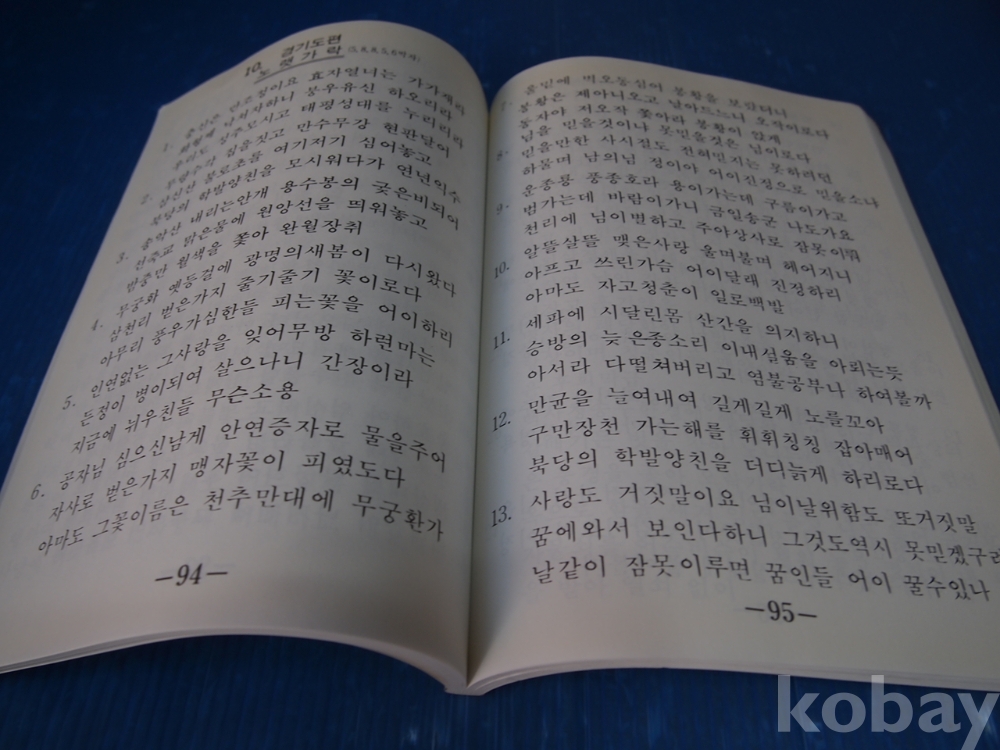 경기도편
10. 노랫가락 (5,8,8,5,6박자)
1. 충신은 만조정이요 효자열녀는 가가재라
화형제 낙처자하니 붕우유신 하오리라
우리도 성주모시고 태평성대를 누리리라
2. 무량수각 집을짓고 만수무강 현판달아
삼신산 불로초를 여기저기 심어놓고
북당의 학발양친을 모시워다가 연년익수
3. 송악산 내리는안개 용수봉의 궂은비되어
선죽교 맑은물에 원앙선을 띄워놓고
밤중만 월색을 쫓아 완월장취
4. 무궁화 옛등걸에 광명의새봄이 다시왔다
삼천리 벋은가지 줄기줄기 꽃이로다
아무리 풍우가심한들 피는꽃을 어이하리
5. 인연없는 그사랑을 잊어무방 하련마는
든정이 병이되여 살으나니 간장이라
지금에 뉘우친들 무슨소용
6. 공자님 심으신남게 안연증자로 물을주어
자사로 벋은가지 맹자꽃이 피였도다
아마도 그꽃이름은 천추만대에 무궁환가
-94-
7. 벽오동심어 봉황을 보랐더니
봉황은 제아니오고 날아드느니 오작이로다
동자야 저오작 쫓아라 봉황이 앉게
8. 님을 믿을것이냐 못믿을것은 님이로다
믿을만한 사시절도 전혀믿지는 못하려던
하물며 남의님 정이야 어이진정으로 믿을소냐
9. 운종룡 풍종호라 용이가는데 구름이가고
범가는데 바람이가니 금일송군 나도가요
천리에 님이별하고 주야상사로 잠못이뤄
10. 알뜰살뜰 맺은사랑 울며불며 헤어지니
아프고 쓰린가슴 어이달래 진정하리
아마도 자고청춘이 일로백발
11. 세파에 시달린몸 산간을 의지하니
승방의 늦은종소리 이내설움을 아뢰는듯
아서라 다떨쳐버리고 염불공부나 하여볼까
12. 만균을 늘여내여 길게길게 노를꼬아
구만장천 가는해를 휘휘칭칭 잡아매어
북당의 학발양친을 더디늙게 하리로다
13. 사랑도 거짓말이요 님이날위함도 또거짓말
꿈에와서 보인다하니 그것도역시 못믿겠구려
날같이 잠못이루면 꿈인들 어이 꿀수있나
-95-
kobay